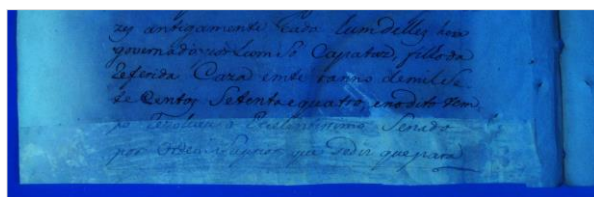 zes antigamente Cada hum delles hera
governado por hum Só Capataz, filho da
referida Caza emte o anno de mil Se=
te Centos Setenta e quatro, enodito tem
po Rezolveu o Excelentissimo Senado
por Ordem Superior, que Sedis que para